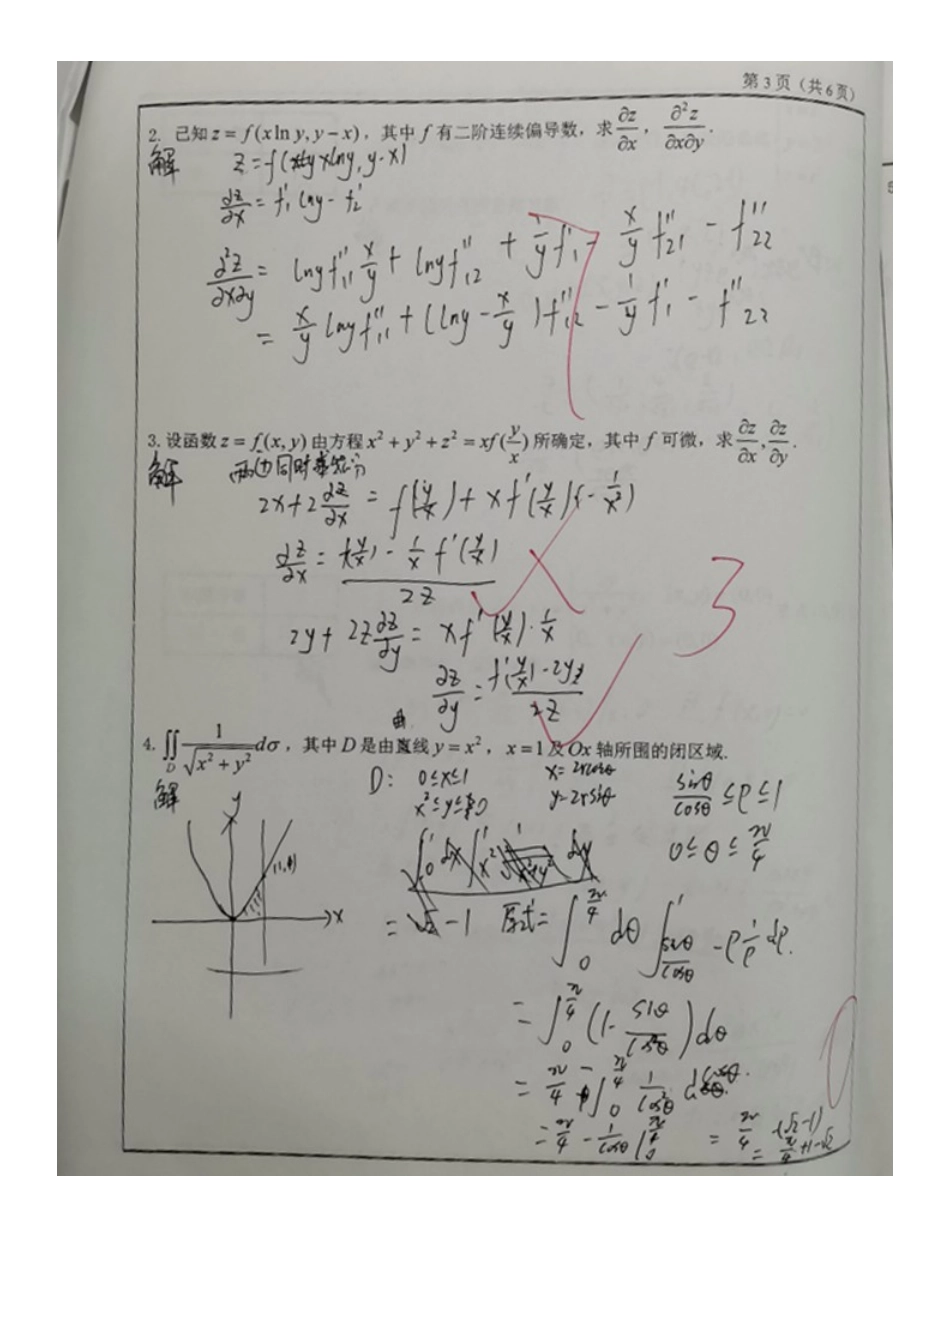 第3页（共6页）
2. 已知 z = f(x ln y, y − x)，其中 f 有二阶连续偏导数，求 ∂z/∂x， ∂²z/∂x∂y.
解 z = f(xlny, y-x)
∂z/∂x = f₁' lny - f₂'
∂²z/∂x∂y = lny f₁₁'' x/y + lny f₁₂'' + 1/y f₁' - x/y f₂₁'' - f₂₂''
= x/y lny f₁₁'' + (lny - x/y) f₁₂'' - 1/y f₁' - f₂₂''
7
3. 设函数 z = f(x, y) 由方程 x² + y² + z² = xf(y/x) 所确定，其中 f 可微，求 ∂z/∂x, ∂z/∂y.
解 两边同时求
2x+2 ∂z/∂x = f(y/x) + x f'(y/x)(-1/x²)
∂z/∂x = (f(y/x) - 1/x f'(y/x)) / 2z
3
2y + 2z ∂z/∂y = x f'(y/x)·1/x
∂z/∂y = (f'(y/x) - 2y) / 2z
4. ∬_D 1/√(x² + y²) dσ，其中 D 是由直线 y = x²，x = 1 及 Ox 轴所围的闭区域.
解 D: 0≤x≤1
x=2rcosθ
y=2rsinθ
sinθ/cosθ ≤ρ≤1
0≤θ≤π/4
y
x
= √2 - 1 原式= ∫₀^(π/4) dθ ∫_(sinθ/cosθ)^1 -ρ 1/ρ dρ.
= ∫₀^(π/4) (1 - sinθ/cos²θ) dθ
= π/4 - ∫₀^(π/4) 1/cos²θ dcosθ.
= π/4 - 1/cosθ |₀^(π/4) = π/4 - (√2-1)
= π/4 + 1 - √2
0